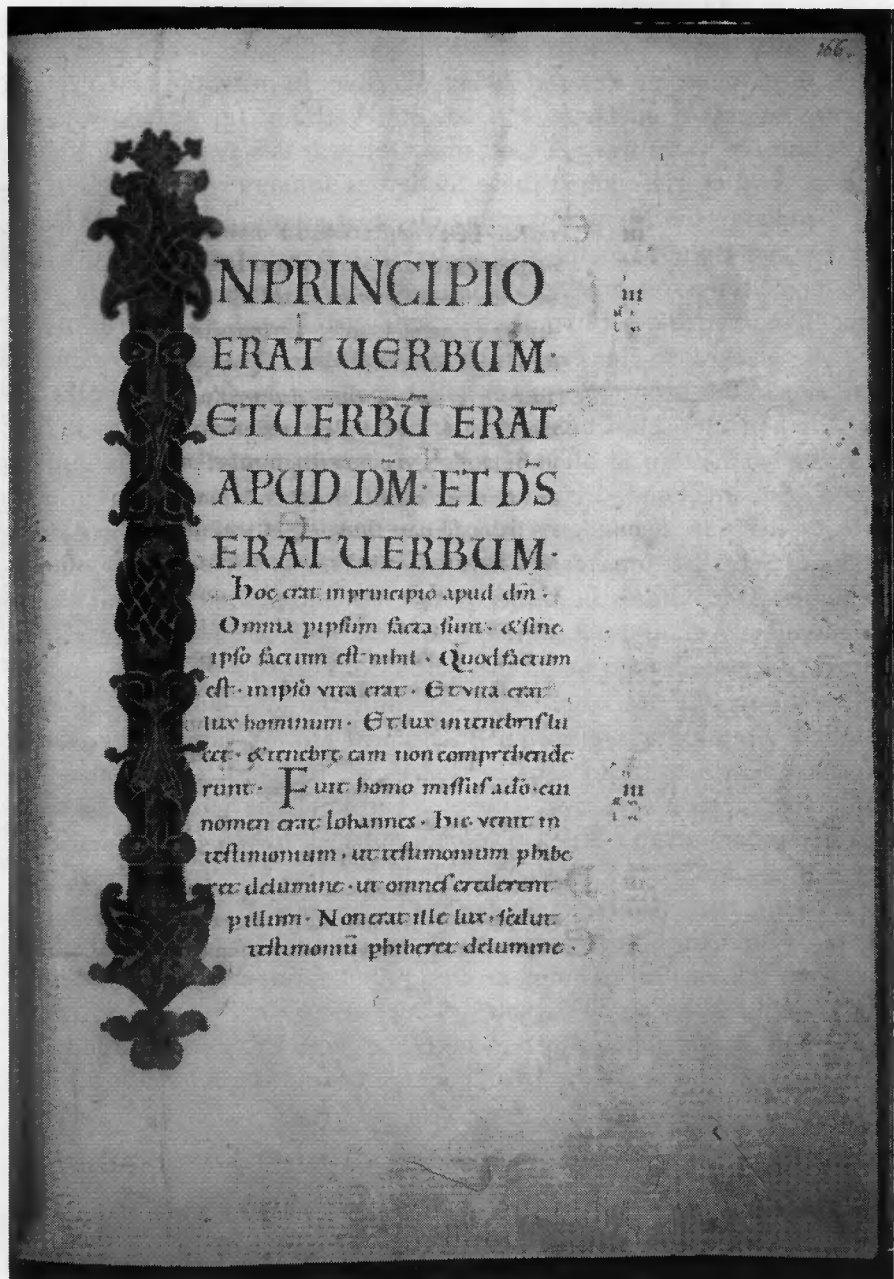 166.
NPRINCIPIO
ERAT UERBUM·
ET UERBŪ ERAT
APUD DM̄· ET DS̄
ERAT UERBUM·
hoc erat inprincipio apud dm̄·
Omnia pipsum facta sunt· & sine
ipso factum est nihil· Quod factum
est· inipso vita erat· Et vita erat
lux hominum· Et lux intenebris lu
cet· & tenebrę eam non comprehende
runt· Fuit homo missus adō· cui
nomen erat Iohannes· hic venit in
testimonium· ut testimonium phibe
ret delumine· ut omnes crederent
pillum· Non erat ille lux· sed ut
testimoniū phiberet delumine·
III
III